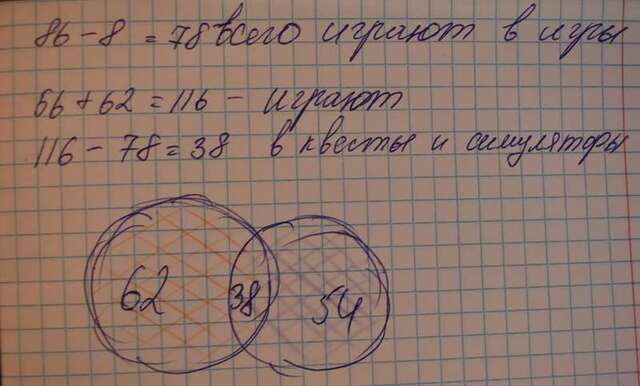 86 - 8 = 78 всего играют в игры
66 + 62 = 116 - играют
116 - 78 = 38 в квесты и симуляторы
62 38 54